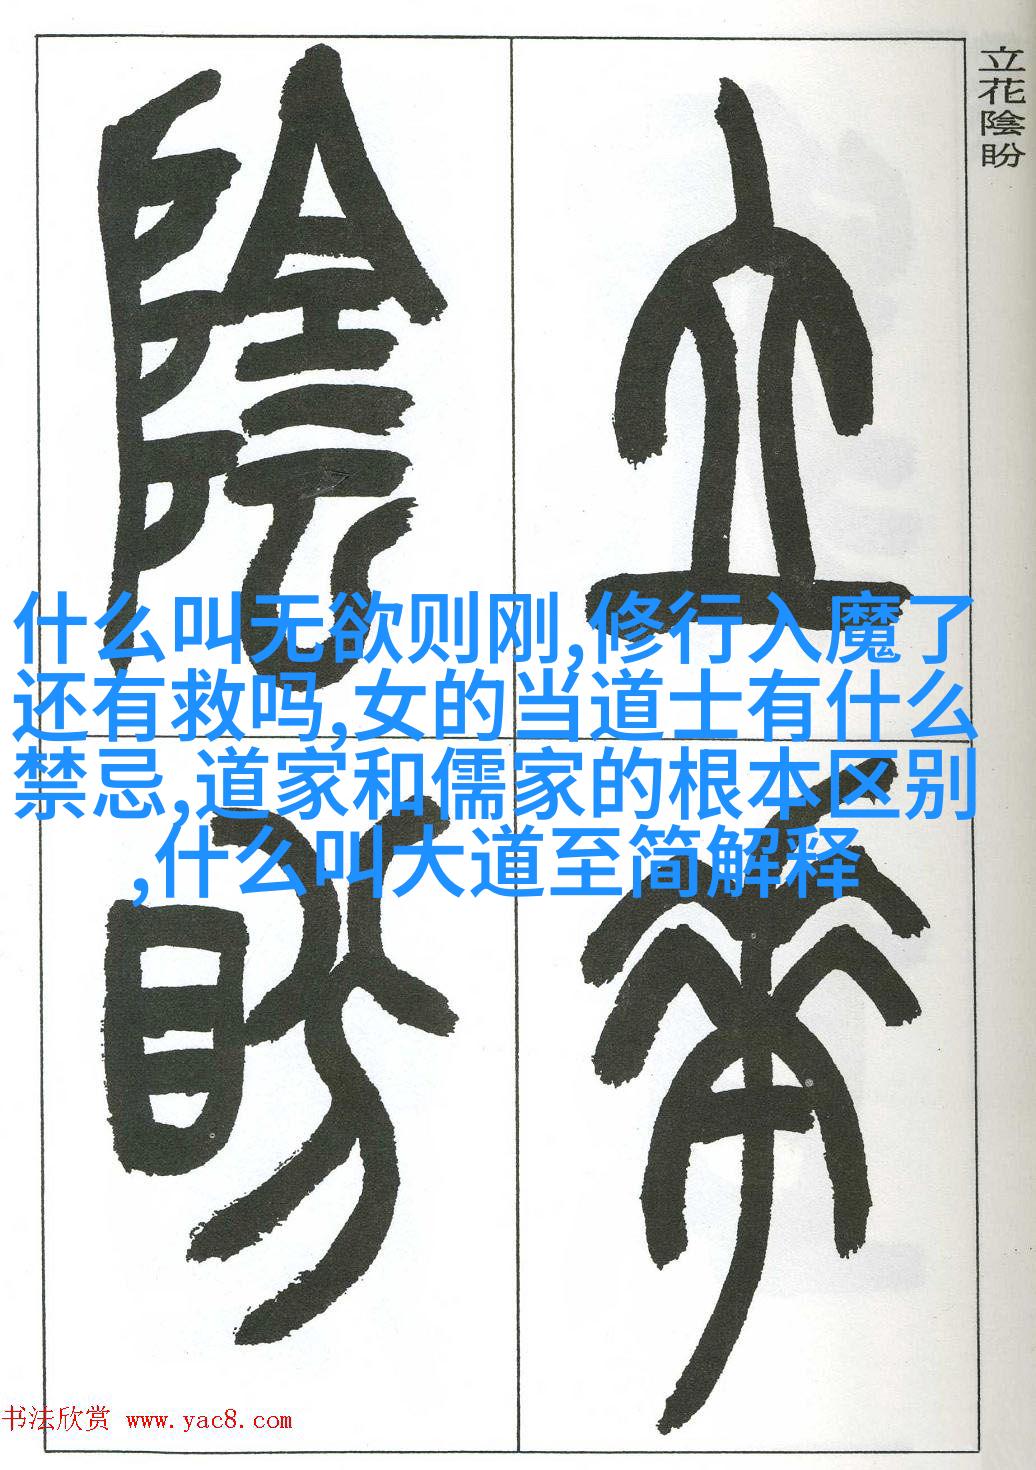 立花陰盼
立
花
陰
盼
什么叫无欲则刚,修行入魔了
还有救吗,女的当道士有什么
禁忌,道家和儒家的根本区别
,什么叫大道至简解释
书法欣赏 www.yac8.com